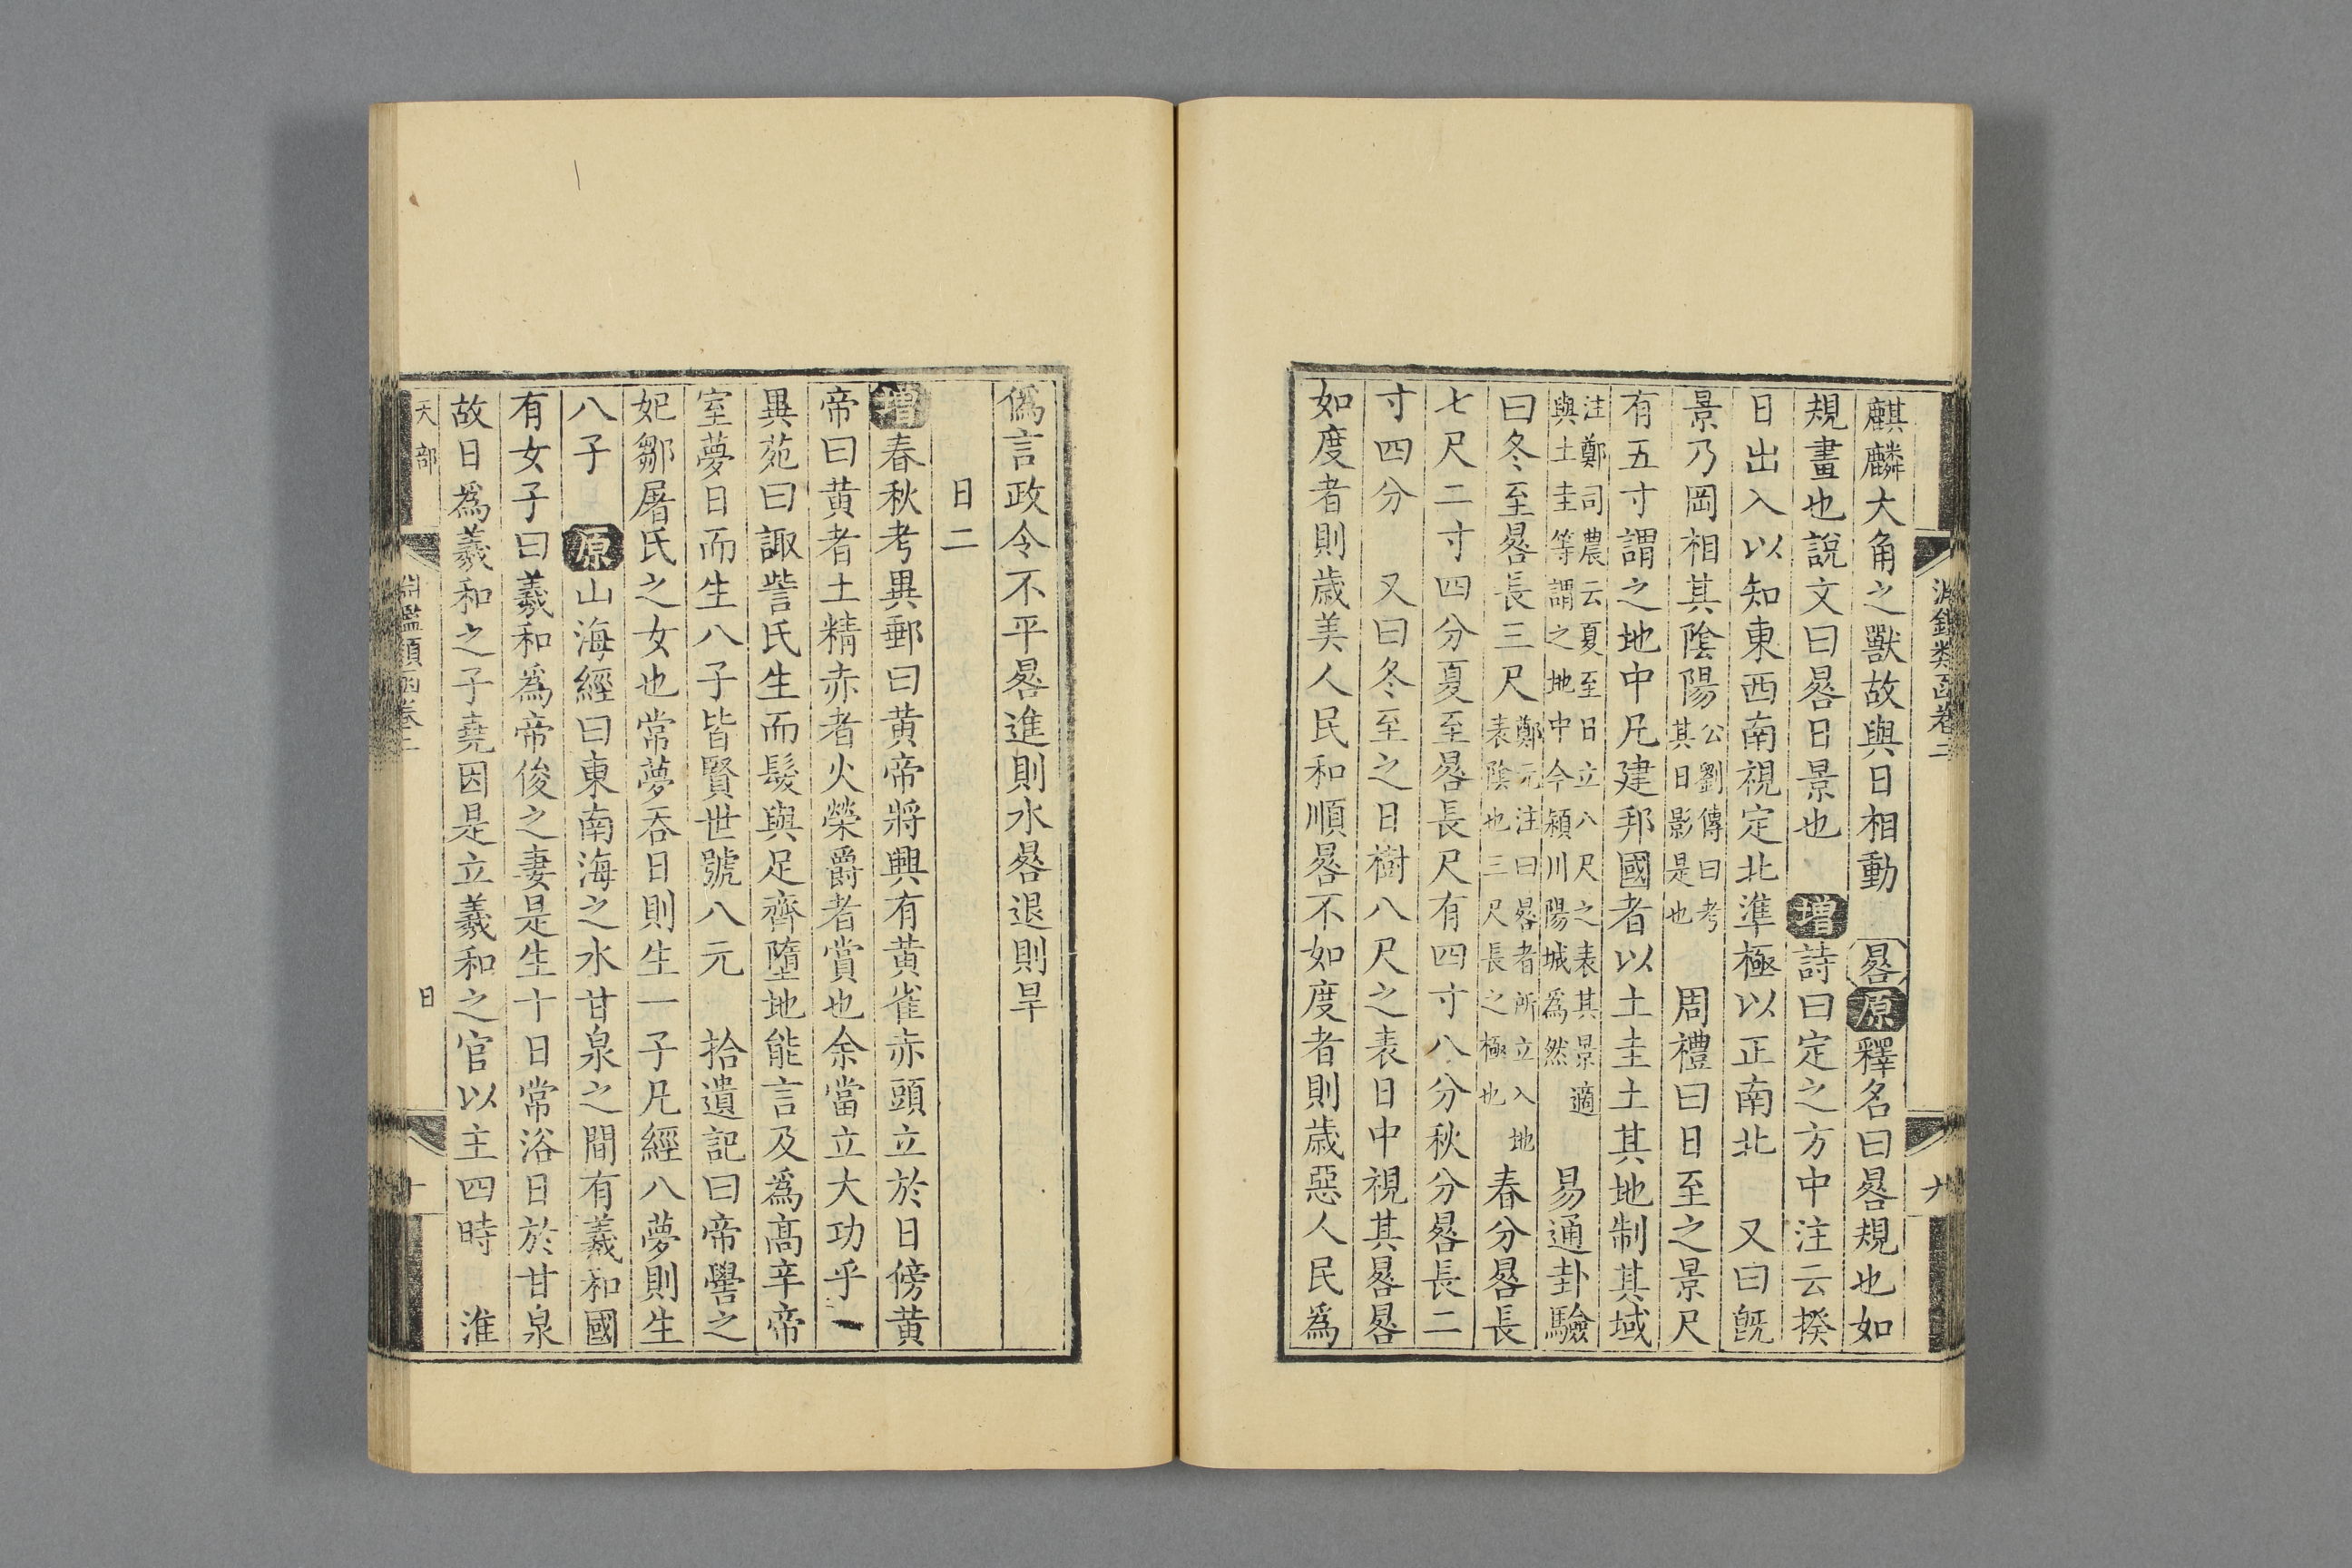 淵鑑類函卷二
麒麟大角之獸故與日相動　晷原釋名曰晷規也如
規畫也說文曰晷日景也　增詩曰定之方中注云揆
日出入以知東西南視定北準極以正南北　又曰旣
景乃岡相其陰陽公劉傳曰考其日影是也　周禮曰日至之景尺
有五寸謂之地中凡建邦國者以土圭土其地制其域
注鄭司農云夏至日立八尺之表其景適與土圭等謂之地中今潁川陽城爲然　易通卦驗
曰冬至晷長三尺鄭元注曰晷者所立入地表陰也三尺長之極也　春分晷長
七尺二寸四分夏至晷長尺有四寸八分秋分晷長二
寸四分　又曰冬至之日樹八尺之表日中視其晷晷
如度者則歲美人民和順晷不如度者則歲惡人民爲
僞言政令不平晷進則水晷退則旱
日二
增春秋考異郵曰黃帝將興有黃雀赤頭立於日傍黃
帝曰黃者土精赤者火榮爵者賞也余當立大功乎
異苑曰諏訾氏生而髮與足齊墮地能言及爲高辛帝
室夢日而生八子皆賢世號八元　拾遺記曰帝嚳之
妃鄒屠氏之女也常夢吞日則生一子凡經八夢則生
八子　原山海經曰東南海之水甘泉之間有羲和國
有女子曰羲和爲帝俊之妻是生十日常浴日於甘泉
故日爲羲和之子堯因是立羲和之官以主四時　淮
天部　淵鑑類函卷二　日